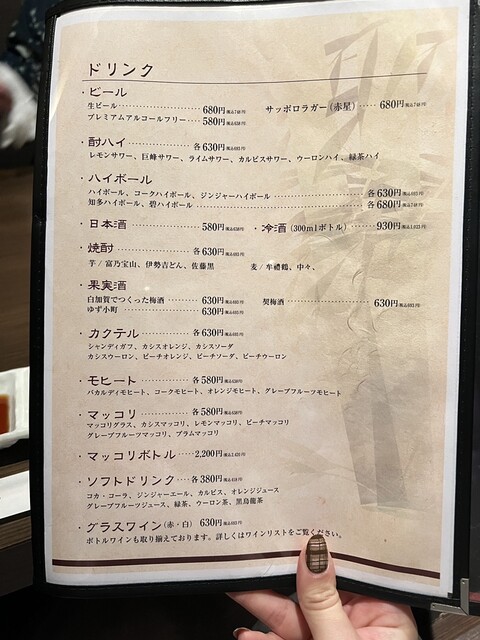 ドリンク
・ビール
生ビール 680円(税込748円) サッポロラガー(赤星) 680円(税込748円)
プレミアムアルコールフリー 580円(税込638円)
・酎ハイ 各630円(税込693円)
レモンサワー、巨峰サワー、ライムサワー、カルピスサワー、ウーロンハイ、緑茶ハイ
・ハイボール
ハイボール、コークハイボール、ジンジャーハイボール 各630円(税込693円)
知多ハイボール、碧ハイボール 各680円(税込748円)
・日本酒 580円(税込638円) ・冷酒(300mlボトル) 930円(税込1,023円)
・焼酎 各630円(税込693円)
芋/富乃宝山、伊勢吉どん、佐藤黒 麦/ 牟禮鶴、中々、
・果実酒
白加賀でつくった梅酒 630円(税込693円) 契梅酒 630円(税込693円)
ゆず小町 630円(税込693円)
・カクテル 各630円(税込693円)
シャンディガフ、カシスオレンジ、カシスソーダ
カシスウーロン、ピーチオレンジ、ピーチソーダ、ピーチウーロン
・モヒート 各580円(税込638円)
バカルディモヒート、コークモヒート、オレンジモヒート、グレープフルーツモヒート
・マッコリ 各580円(税込638円)
マッコリグラス、カシスマッコリ、レモンマッコリ、ピーチマッコリ
グレープフルーツマッコリ、プラムマッコリ
・マッコリボトル 2,200円(税込2,420円)
・ソフトドリンク 各380円(税込418円)
コカ・コーラ、ジンジャーエール、カルピス、オレンジジュース
グレープフルーツジュース、緑茶、ウーロン茶、黒烏龍茶
・グラスワイン(赤・白) 630円(税込693円)
ボトルワインも取り揃えております。詳しくはワインリストをご覧ください。